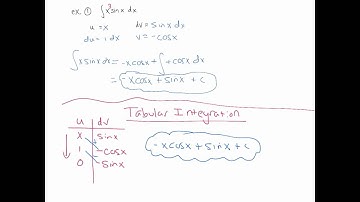 ex. ① ∫x sin x dx
u = x dv = sin x dx
du = 1 dx v = -cos x
∫x sin x dx = -x cos x + ∫+cos x dx
= -x cos x + sin x + c
Tabular Integration
u dv
x sin x
1 -cos x -x cos x + sin x + c
0 -sin x